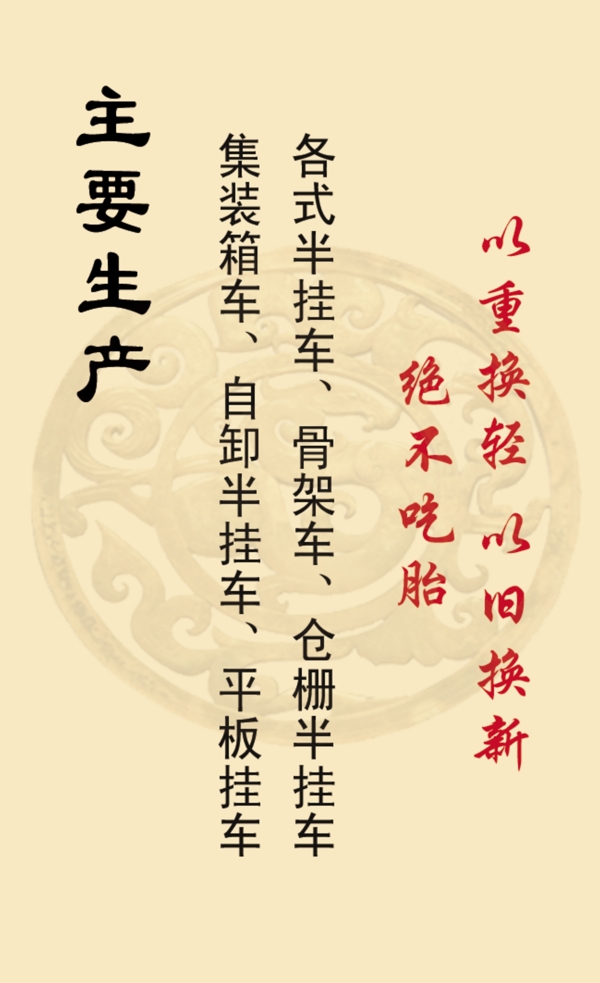 以重换轻 以旧换新
绝不吃胎
各式半挂车、骨架车、仓栅半挂车
集装箱车、自卸半挂车、平板挂车
主要生产